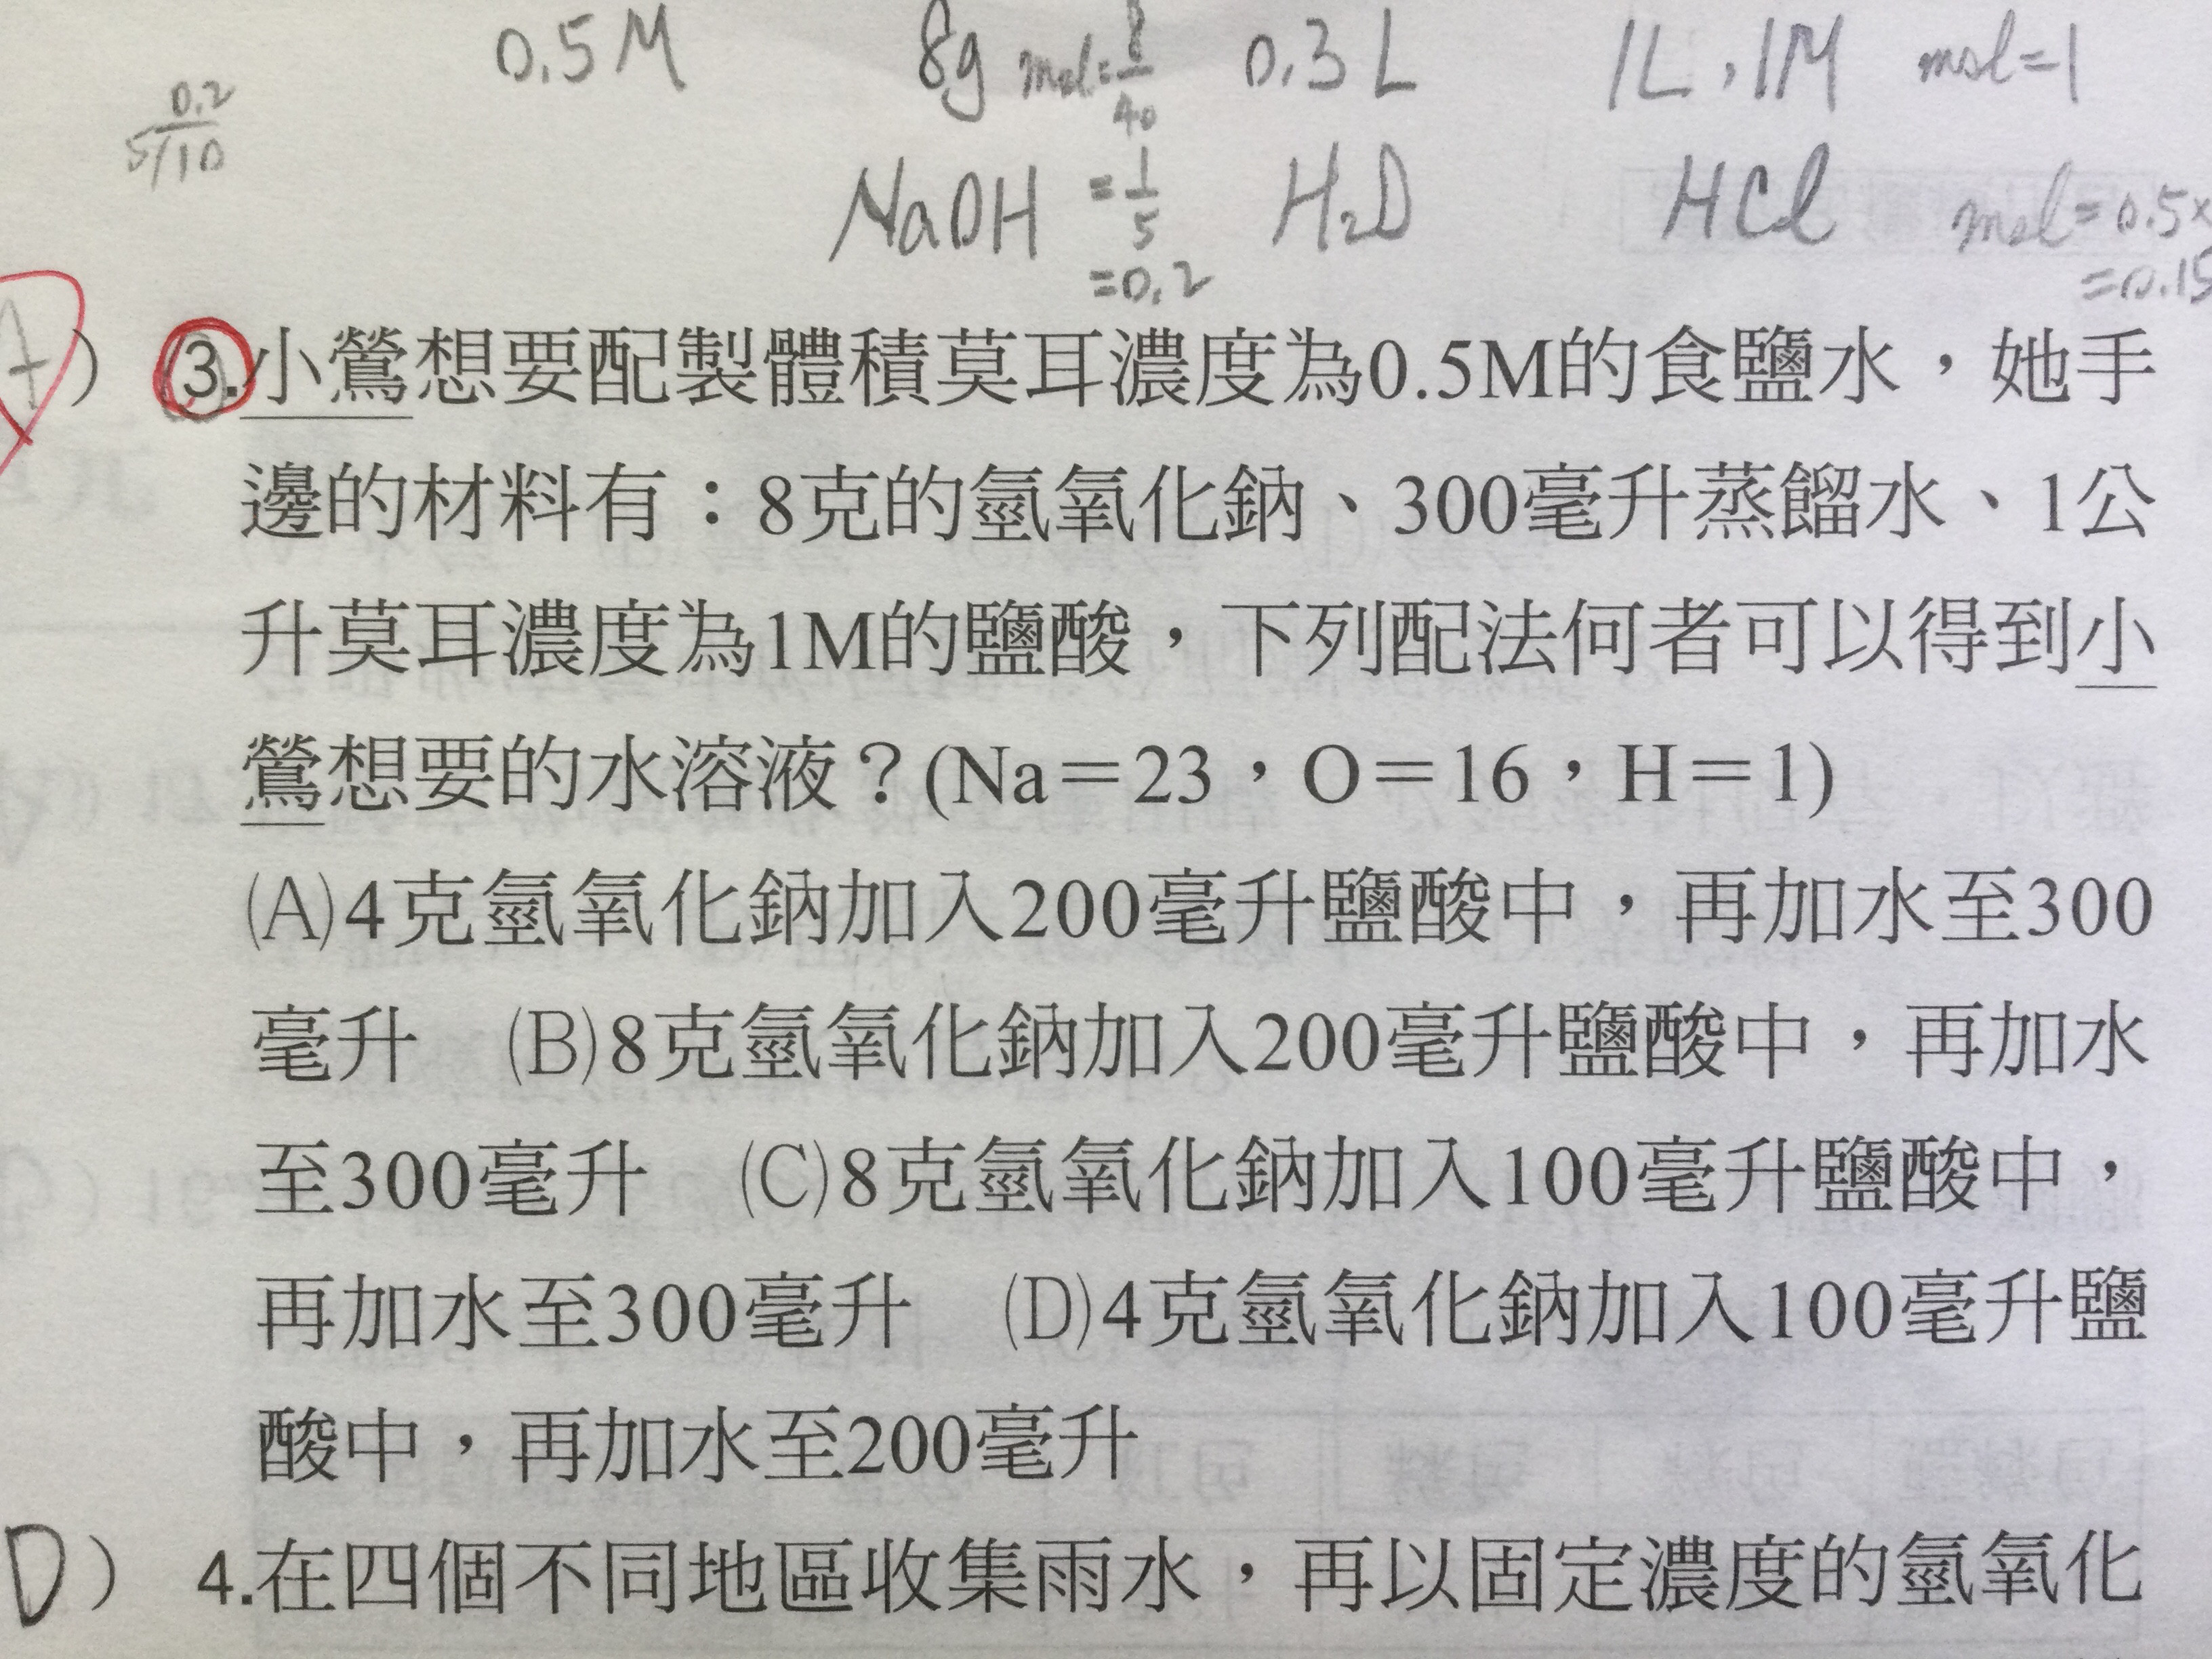 0.5M 8g mol=8/40 0.3L 1L,1M mol=1
0.2
5/10
NaOH =1/5 H2O HCl mol=0.5×
=0.2 =0.15
) 3.小鶯想要配製體積莫耳濃度為0.5M的食鹽水，她手
邊的材料有：8克的氫氧化鈉、300毫升蒸餾水、1公
升莫耳濃度為1M的鹽酸，下列配法何者可以得到小
鶯想要的水溶液？(Na＝23，O＝16，H＝1)
(A)4克氫氧化鈉加入200毫升鹽酸中，再加水至300
毫升　(B)8克氫氧化鈉加入200毫升鹽酸中，再加水
至300毫升　(C)8克氫氧化鈉加入100毫升鹽酸中，
再加水至300毫升　(D)4克氫氧化鈉加入100毫升鹽
酸中，再加水至200毫升
D) 4.在四個不同地區收集雨水，再以固定濃度的氫氧化